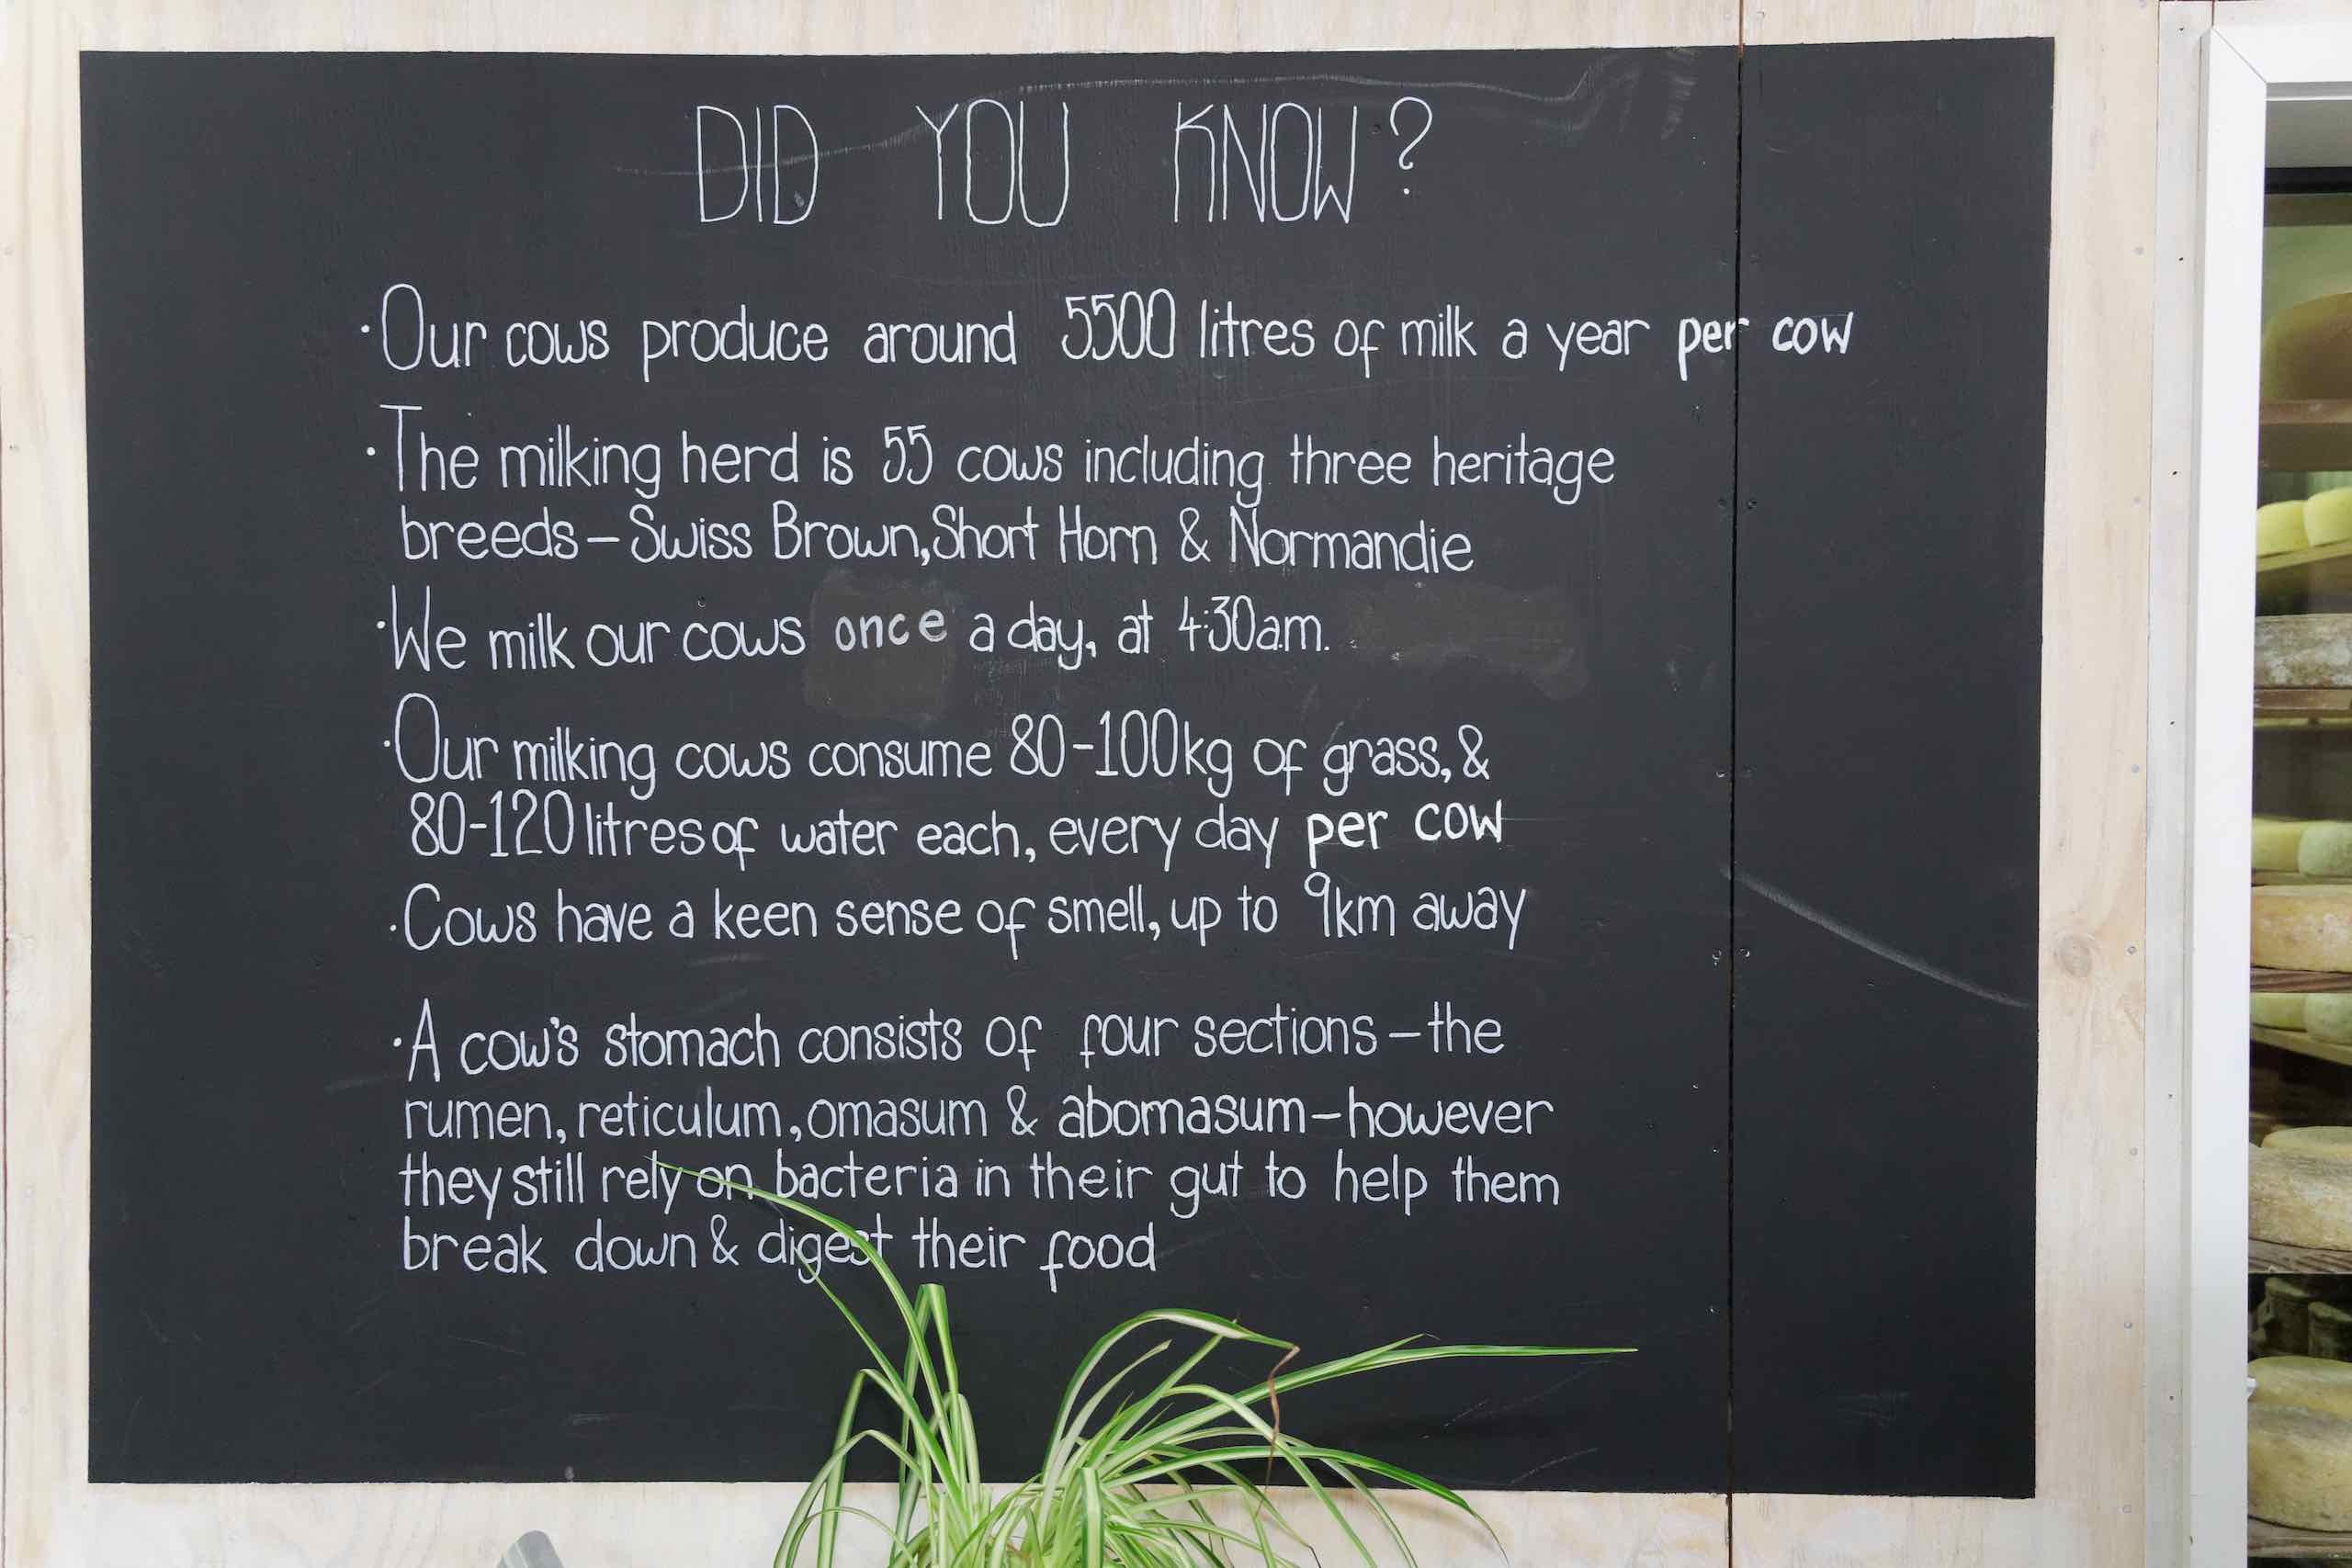 DID YOU KNOW?
·Our cows produce around 5500 litres of milk a year per cow
·The milking herd is 55 cows including three heritage
breeds – Swiss Brown, Short Horn & Normandie
·We milk our cows once a day, at 4:30am.
·Our milking cows consume 80-100kg of grass, &
80-120 litres of water each, every day per cow
·Cows have a keen sense of smell, up to 9km away
·A cow's stomach consists of four sections – the
rumen, reticulum, omasum & abomasum – however
they still rely on bacteria in their gut to help them
break down & digest their food